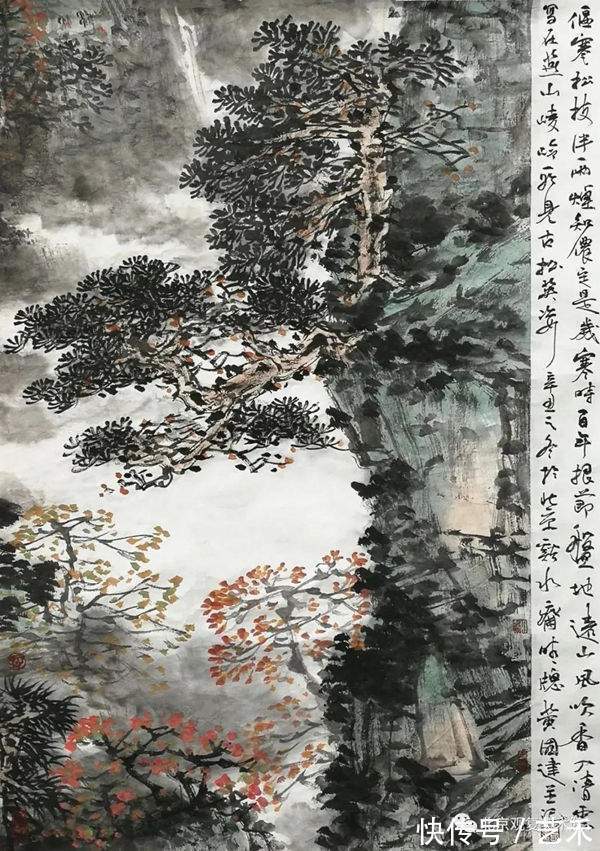 偃蹇松枝伴雨烟知侬定是岁寒时百年根节盘地远山风吹香入清
写在燕山峻岭一见古松英姿辛丑之冬于北京谿水斋时牕黄国建
北京观复
快传号/艺禾